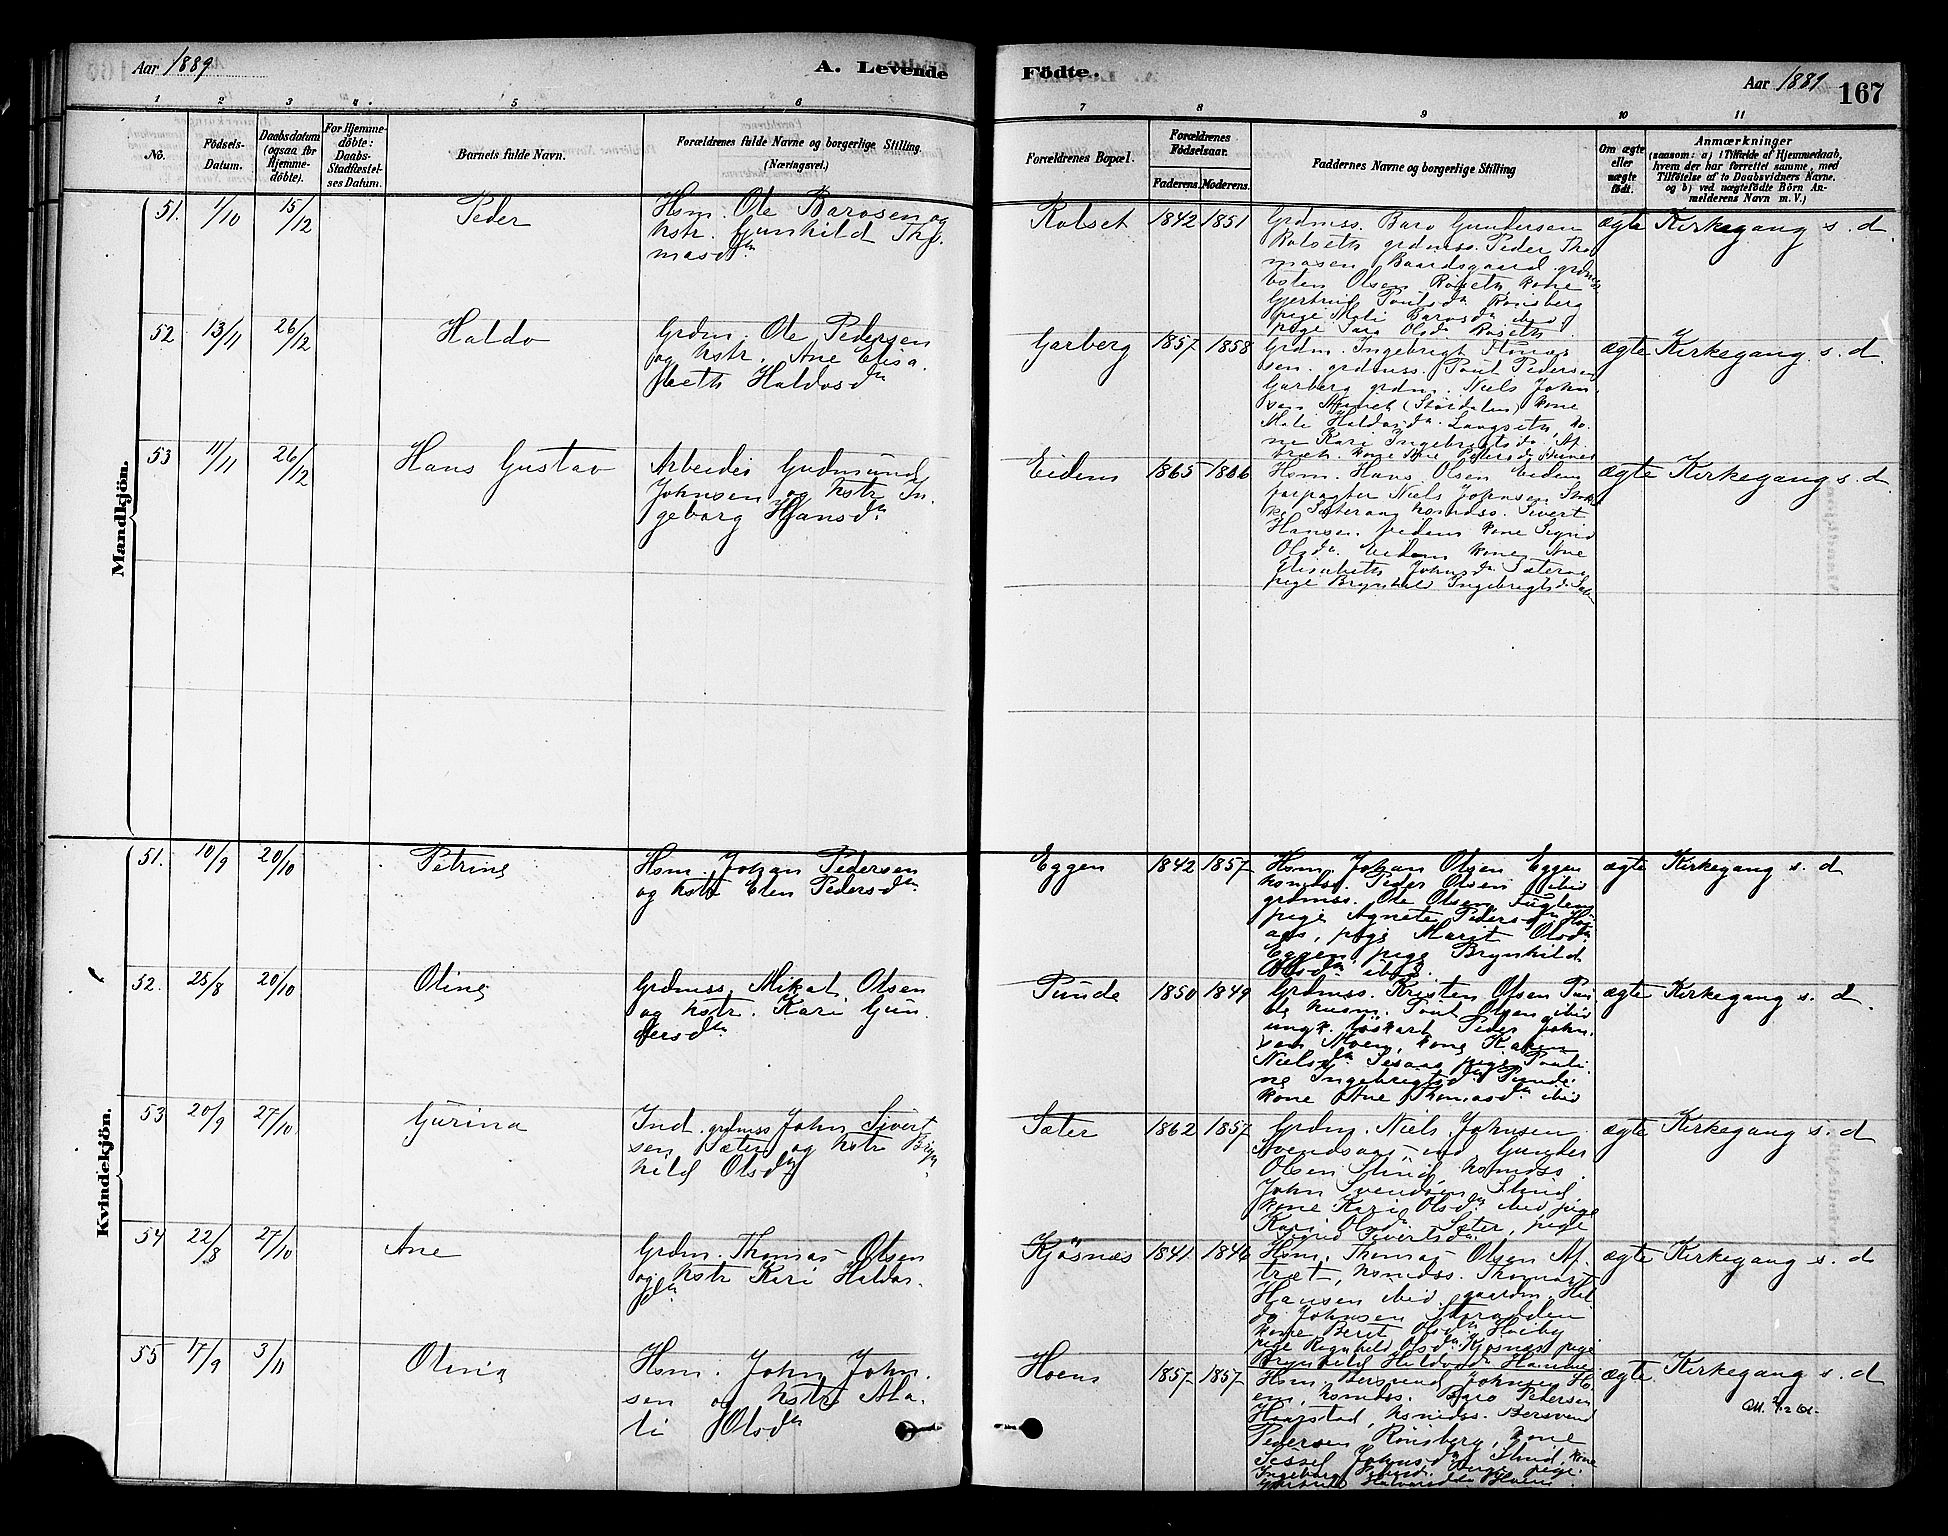 Aar 1889 A. Levende Födte. Aar 1889 167
1 2 3 4 5 6 7 8 9 10 11
No. Födsels-Datum. Daabsdatum (ogsaa for Hjemmedöbte). For Hjemmedöbte: Daabs-Stadfæstelses Datum. Barnets fulde Navn. Forældrenes fulde Navne og borgerlige Stilling. (Næringsvei.) Forældrenes Bopæl. Forældrenes Födselsaar. Faderens. Moderens. Faddernes Navne og borgerlige Stilling Om ægte eller uægte födt. Anmærkninger (saasom: a) i Tilfælde af Hjemmedaab, hvem der har forrettet samme, med Tilföielse af to Daabsvidners Navne, og b) ved uægtefödte Börn Anmelderens Navn m. V.)
Mandkjön.
51. 1/10 15/12 Peder
Hsm. Ole Barosen og
kstr. Gunhild Tho
masdtr
Rolset 1842 1851
Grdmss. Baro Gundersen
Rolseth grdmss. Peder Tho
masen Baardsgaard grdmss
Esten Olsen Roseth kone
Gjertrud Poulsdtr Rönsberg
pige Mali Barosdtr ibid
pige Sara Olsdtr Roseth
ægte Kirkegang s. d.
52 13/11 26/12 Haldo
Grdm. Ole Pedersen
og kstr. Ane Elisa
beth Haldosdtr
Garberg 1857 1858
Grdm. Ingebrigt
sen. grdmss. Poul Pedersen
Garberg grdm. Niels John
sen (Stördalen) kone
Mali Haldosdtr Langseth, ko
ne Kari Ingebrigtsdtr Af
træt. kone Ane Pedersdtr
ægte Kirkegang s. d.
53 11/11 26/12 Hans Gustav
Arbeider Gudmund
Johnsen og kstr In
geborg Hansdtr
Eidem 1865 1866
Hsm. Hans Olsen Eidem
forpagter Niels Johnsen
Sæteraas ksmdss. Sivert
Hansen Eidem kone Sigrid
Olsdtr Eidem kone Ane
Elisabeth Johnsdtr
pige Brynhild Ingebrigtsdtr
ægte Kirkegang s. d.
Kvindekjön.
51. 10/9 20/10 Petrine
Hsm. Johan Pedersen
og kstr Elen Pedersdtr
Eggen 1842 1857
Hsm. Johan Olsen Eggen
ksmdss. Peder Olsen ibid
grdmss. Ole Olsen Fuglem
pige Agnete Pedersdtr
pige Marit Olsdtr
Eggen pige Brynhild
Olsdtr ibid.
ægte Kirkegang s. d
52. 25/8 20/10 Oline
Grdmss. Mikal Olsen
og kstr. Kari Gun
dersdtr
Punde 1850 1849
Grdmss. Kresten Olsen Pun
de husm. Poul Olsen ibid
ungk. Peder John
sen Moen, kone Karen
Nielsdtr Sesaas pige Pauli
ne Ingebrigtsdtr Punde
kone Ane Thomasdtr ibid
ægte Kirkegang s. d.
53 20/9 27/10 Gurina
Ind. grdmss John Sivert
sen Sæter og kstr Bryn
hild Olsdtr
Sæter 1862 1857
Grdm. Niels Johnsen
Gunder
Olsen Slind ksmdss
John Svendsen Slind
kone Kari Olsdtr ibid pige
Kari Olsdtr Sæter, pige
Sigrid Sivertsdtr
ægte Kirkegang s. d
54 22/8 27/10 Ane
Grdm. Thomas Olsen
og kstr Kari Haldos
dtr
Kjösnæs 1841 1846
Hsm. Thomas Olsen Af
træt, ksmdss. Thomas
Hansen ibid gaardm. Hal
do Johnsen
kone Beret Olsdtr Hoiby
pige Ragnhild Olsdtr Kjosnæs pige
Brynhild Haldosdtr
ægte Kirkegang s. d
55 17/9 3/11 Olina
Hsm. John John
sen og kstr Ma
li Olsdtr
Hoem 1857 1857
Hsm. Bersvend Johnsen Ho
em, ksmdss. Baro Pedersen
Haarstad, ksmdss. Bersvend
Pedersen Rönsberg, kone
Sessel Johnsdtr Slind, kone
Ingeborg pige
Halvorsdtr Hoem
ægte Kirkegang s. d